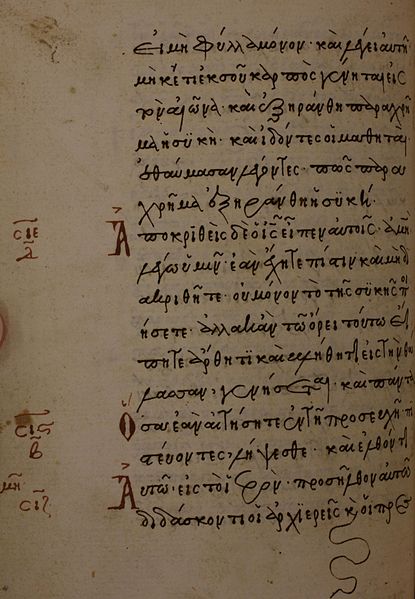 εἰ μὴ φύλλα μόνον· καὶ λέγει αὐτῆ·
μηκέτι ἐκ σοῦ καρπὸς γένηται εἰς
τὸν αἰῶνα· καὶ ἐξηράνθη παραχρῆ
μα ἡ συκῆ· καὶ ἰδόντες οἱ μαθηταὶ
ἐθαύμασαν λέγοντες· πῶς παρα
χρῆμα ἐξηράνθη ἡ συκῆ·
Ἀποκριθεὶς δὲ ὁ ι̅ς̅ εἶπεν αὐτοῖς· ἀμὴ
σιε
λέγω ὑμῖν· ἐὰν ἔχητε πίστιν καὶ μὴ δι
ακριθῆτε· οὐ μόνον τὸ τῆς συκῆς π
ήσετε· ἀλλὰ κἂν τῶ ὄρει τούτω εἴ
πητε ἄρθητι καὶ βλήθητι εἰς τὴν θα
λασσαν, γενήσεται· καὶ πάντα
Ὅσα ἐὰν αἰτήσητε ἐν τῆ προσευχῆ πι
σις
β
στεύοντες, λήψεσθε· καὶ ἐλθόντι
Αὐτῶ· εἰς τὸ ἱερὸν· προσῆλθον αὐτῶ
σιζ
διδάσκοντι οἱ ἀρχιερεῖς κ οἱ πρεσ